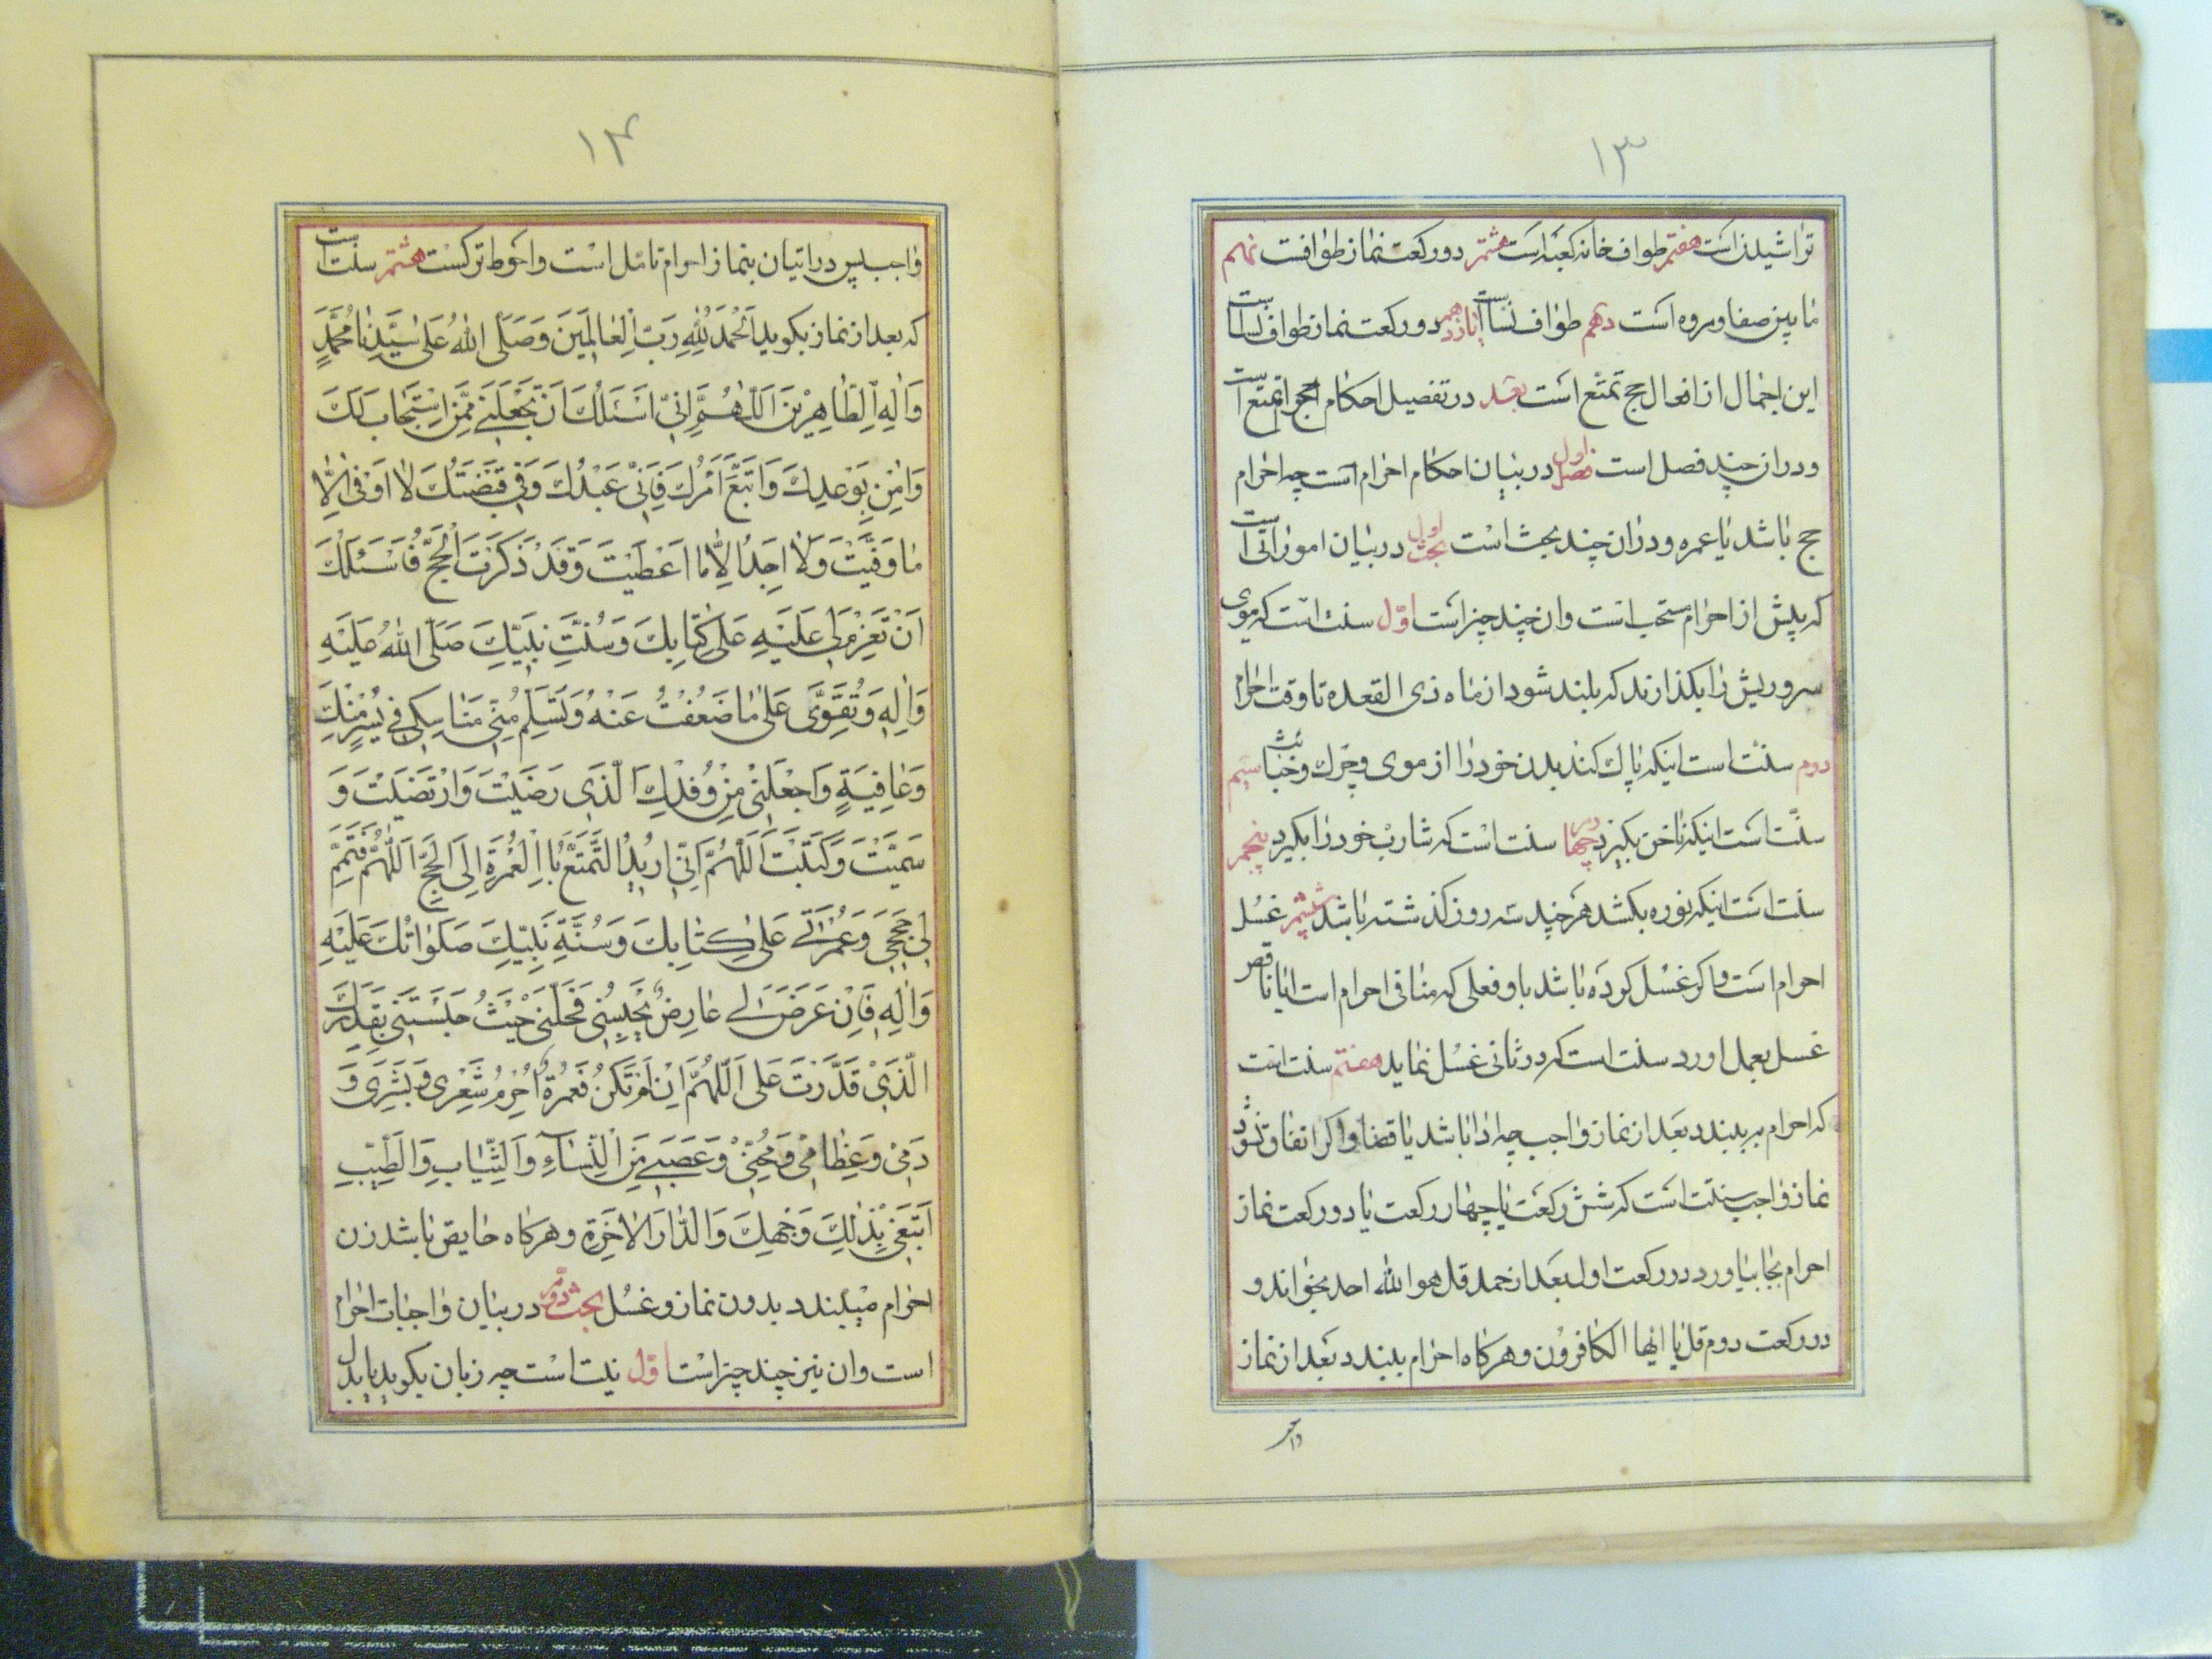 ۱۳
تراشیدنست هفتم طواف خانه کعبه است هشتم دو رکعت نماز طوافست نهم
ما بین صفا و مروه است دهم طواف نسا است یازدهم دو رکعت نماز طواف نسا است
این اجمال از افعال حج تمتع است بعد در تفصیل احکام حج تمتع است
و دران چند فصل است فصل اول در بیان احکام احرام است چه احرام
حج باشد یا عمره و دران چند بحث است بحث اول در بیان امور اتی است
که پیش از احرام مستحب است وان چند چیز است اول سنت است که موی
سر و ریش را بکذارند که بلند شود از ماه ذی القعده تا وقت احرام
دوم سنت است اینکه پاک کند بدن خود را از موی و چرک و خباثت سیم
سنت است اینکه ناخن بکیرد چهارم سنت است که شارب خود را بکیرد پنجم
سنت است اینکه نوره بکشد هر چند سه روز کذشته باشد ششم غسل
احرام است و اکر غسل کرده باشد با و فعلی که منافی احرام است
غسل بعمل اورد سنت است که در ثانی غسل نماید هفتم سنت است
که احرام به بندد بعد از نماز واجب چه ادا باشد یا قضا و اکر اتفاق نشود
نماز واجب سنت است که شش رکعت یا چهار رکعت یا دو رکعت نماز
احرام بجا بیاورد در رکعت اول بعد از حمد قل هو الله احد بخواند و
در رکعت دوم قل یا ایها الکافرون و هرکاه احرام ببندد بعد از نماز
۱۴
واجب پس در اتیان بنماز احرام تامل است و احوط ترکست هشتم سنت است
که بعد از نماز بکوید اَلْحَمْدُ لِلّٰهِ رَبِّ الْعٰالَمِیَنَ وَصَلَّی اللهُ عَلیٰ سَیِّدِنٰا مُحَمَّدٍ
وَاٰلِهِ الطّٰاهِرْیِنَ اَللّٰهُمَّ اِنّیِ اَسْئَلُکَ اَنْ تَجْعَلَنیِ مِمَّنِ اسْتَجٰابَ لَکَ
وَاٰمَنَ بِوَعْدِکَ وَاتَّبَعَ اَمْرَکَ فَاِنّیِ عَبْدُکَ وَفیِ قَبْضَتِکَ لٰا اُوْفیٰ اِلّٰا
مٰا وَقَیْتَ وَلٰا اجِدُ اِلّٰا مٰا اَعْطَیْتَ وَقَدْ ذَکَرْتَ الْحَجَّ فَاَسْئَلُکَ
اَنْ تَعْزِمَ لیِ عَلَیْهِ عَلیٰ کِتٰابِکَ وَسُنَّةِ نَبِیِّکَ صَلَّی اللهُ عَلَیْهِ
وَاٰلِهِ وَتُقَوِّیَنیِ عَلیٰ مٰا ضَعُفْتُ عَنْهُ وَتَسَلَّمَ مِنّیِ مَنٰاسِکیِ فیِ یُسْرٍ مِنْکَ
وَعٰافِیَةٍ وَاجْعَلْنیِ مِنْ وَفْدِکَ الَّذیِ رَضَیْتَ وَارْتَضَیْتَ وَ
سَمَّیْتَ وَکَتَبْتَ اَللّٰهُمَّ اِنّیِ اُرِیْدُ التَّمَتُّعَ بِاالْعُمْرَةِ اِلَی الْحَجِّ اَللّٰهُمَّ فَتَمِّمْ
لیِ حَجّیِ وَعُمْرَتیِ عَلیٰ کِتٰابِکَ وَسُنَّةِ نَبِیِّکَ صَلَوٰاتُکَ عَلَیْهِ
وَاٰلِهِ فَاِنْ عَرَضَ لیِ عٰارِضٌ یَحْبِسُنیِ فَحُلَّنیِ حَیْثُ حَبَسْتَنیِ بِقَدَرِکَ
الَّذیِ قَدَّرْتَ عَلَیَّ اَللّٰهُمَّ اِنْ لَمْ تَکُنْ فَعُمْرَةً اُحْرِمُ شَعْریِ وَبَشَریِ وَ
دَمیِ وَعِظٰامیِ وَمُخّیِ وَعَصَبیِ مِنَ الْنِّسٰآءِ وَالثِّیٰابِ وَالطِّیِبِ
اَبْتَغیِ بِذٰلِکَ وَجْهَکَ وَالدّٰارَ الْاٰخِرَةِ و هرکاه حایض باشد زن
احرام میبندد بدون نماز و غسل بحث دوم در بیان واجبات احرام
است وان نیز چند چیز است اول نیت است چه زبان بکوید یا بدل